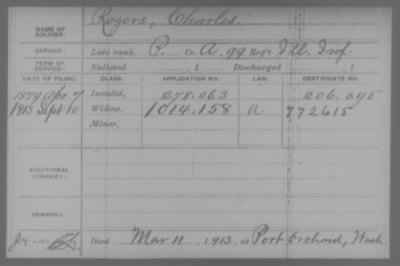 NAME OF SOLDIER: Rogers, Charles.
SERVICE: Late rank, P. Co. A. 99 Reg't Ill. Inf.
TERM OF SERVICE: Enlisted , 1 Discharged , 1
DATE OF FILING. CLASS. APPLICATION NO. LAW. CERTIFICATE NO.
1879 Apr 7 Invalid, 278.063 206.095
1913 Sept 10 Widow, 1014.158 a 772615
Minor,
ADDITIONAL SERVICES:
REMARKS:
Died Mar 11, 1913, at Port Orchard, Wash.